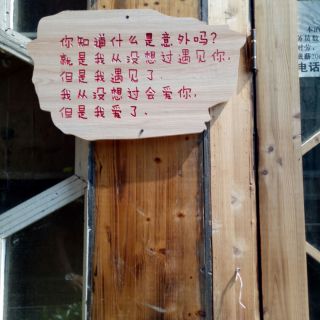 你知道什么是意外吗?
就是我从没想过遇见你,
但是我遇见了.
我从没想过会爱你,
但是我爱了、
电话